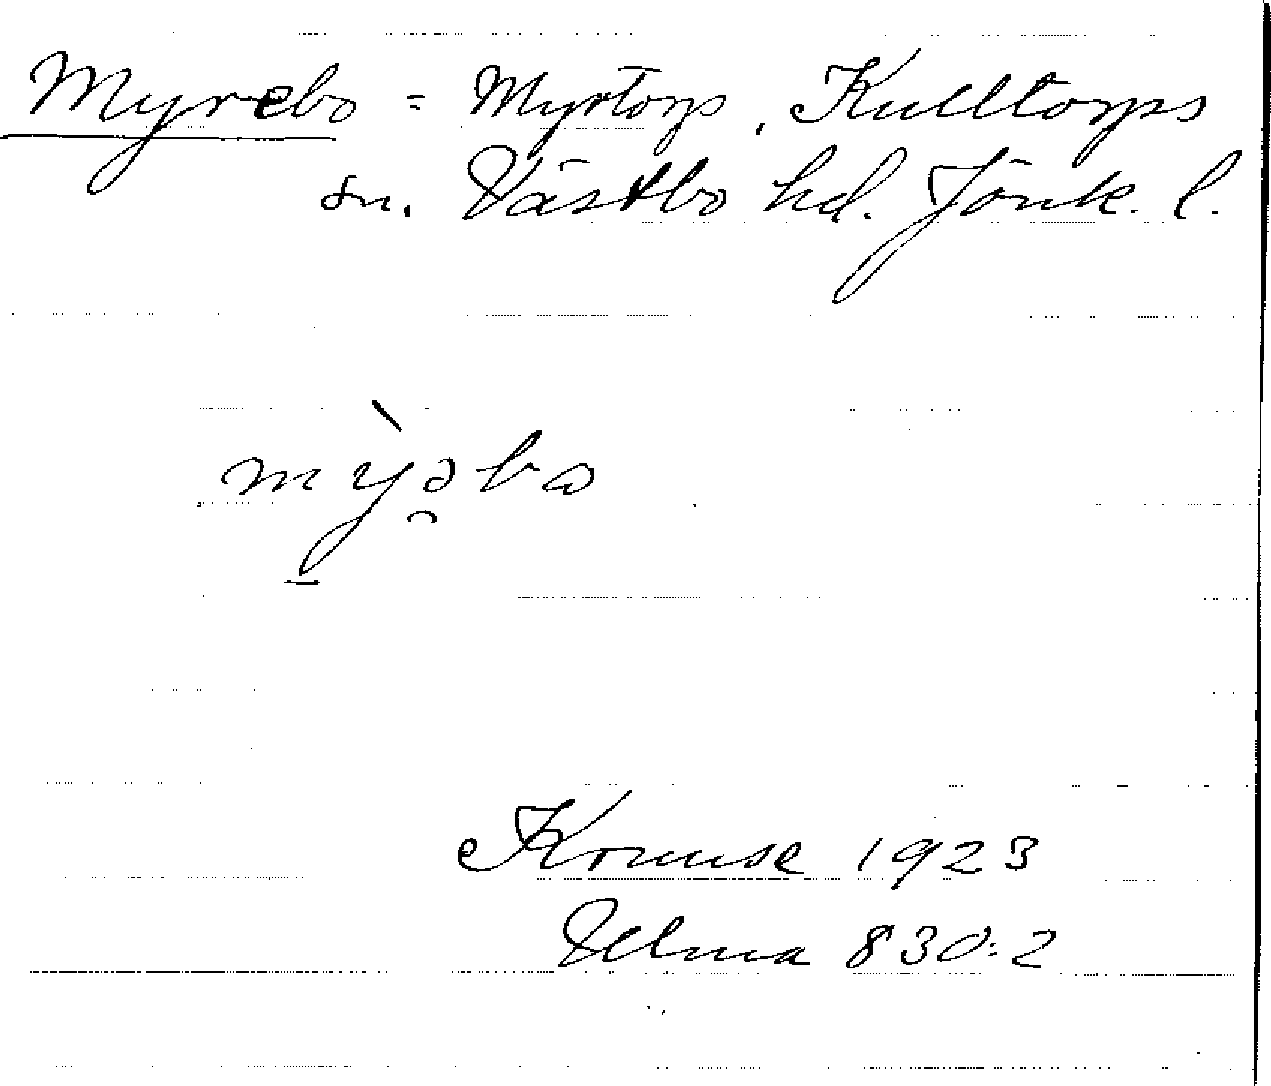 Myrebo = Myrtorp, Kulltorps
sn. Västbo hd. Jönk. l.
mỳə̯bω
Kruuse 1923
Ulma 830:2